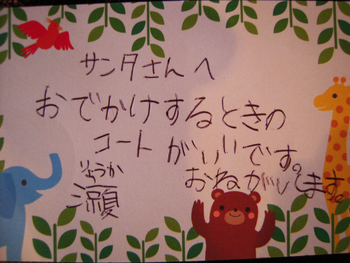 サンタさんへ
おでかけするときの
コートがいいです。
おねがいします。
りょうか